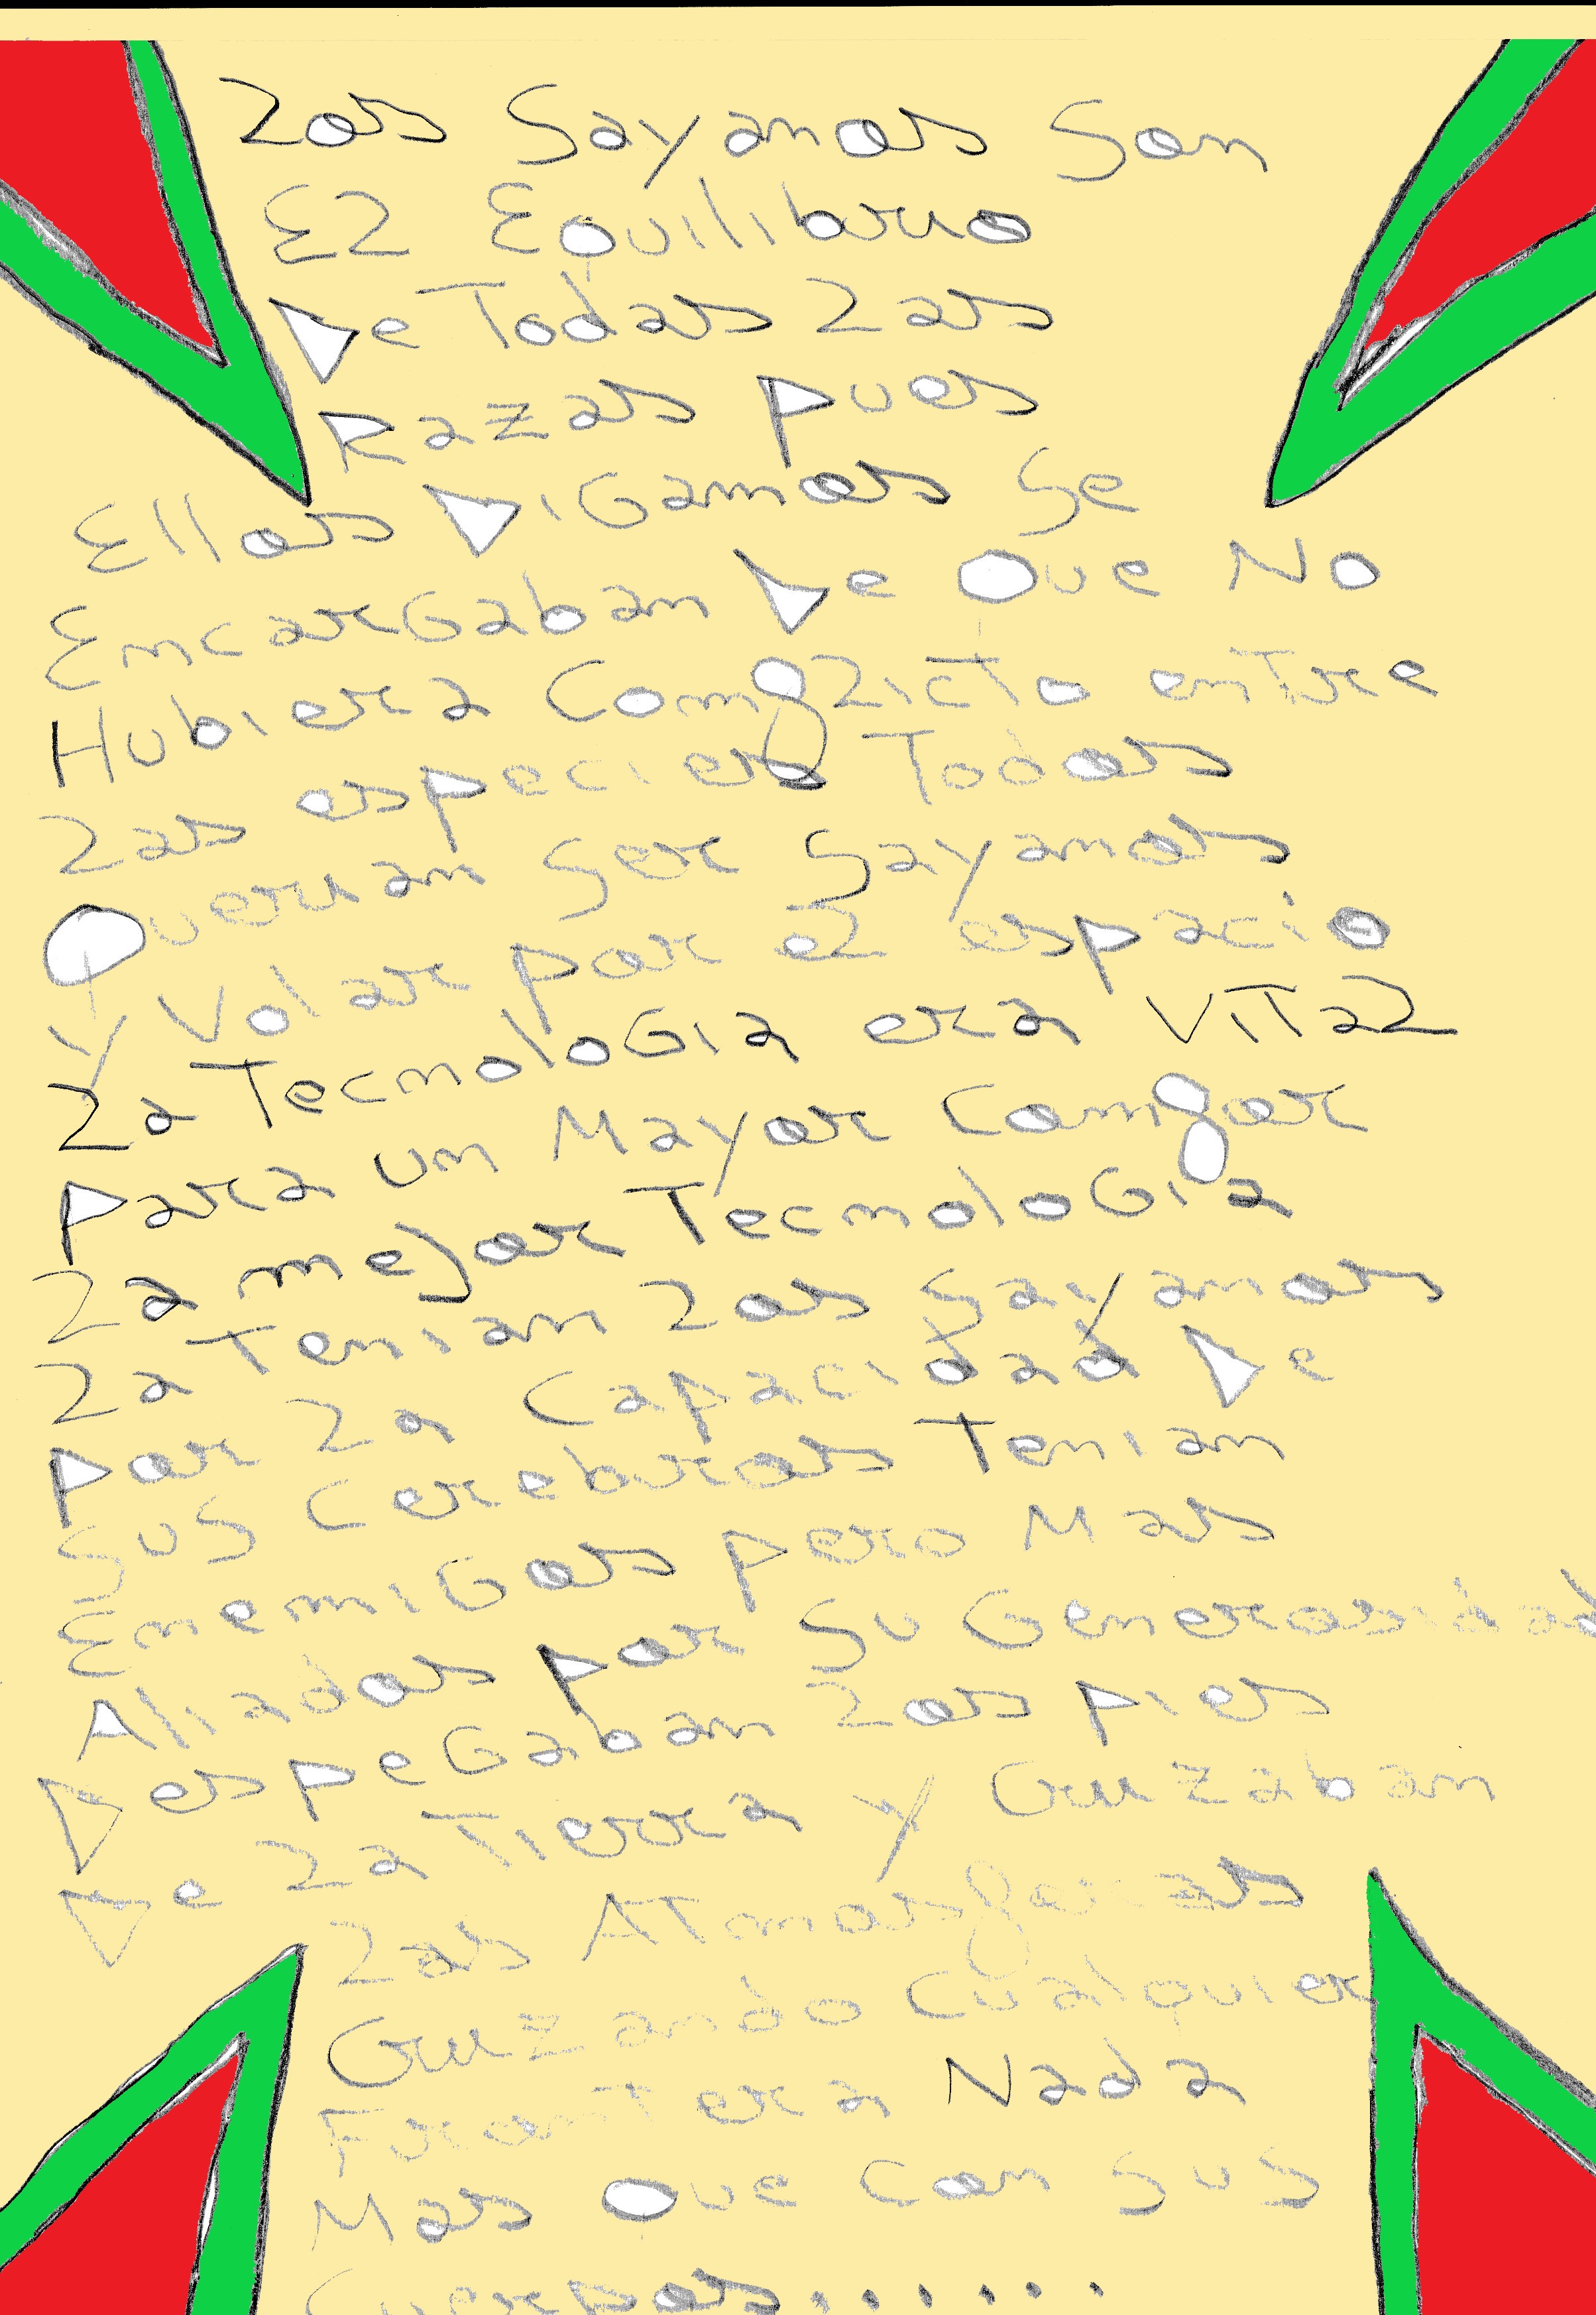 Los Sayanos Son
El Equilibrio
De Todas Las
Razas pues
Ellos DiGamos Se
EncarGaban De Que No
Hubiera Conflicto entre
Las especies Todos
Querian Ser Sayanos
y Volar por el espacio
La TecnoloGia era ViTal
para un Mayor Confor
La mejor TecnoloGia
La Tenian Los Sayanos
por La Capacidad De
SuS Cerebros Tenian
EnemiGos pero Mas
Aliados por Su Generosidad
DespeGaban Los pies
De La Tierra y Cruzaban
Las ATmosferas
Cruzando Cualquier
FronTera Nada
Mas Que Con SuS
Cuerpos......